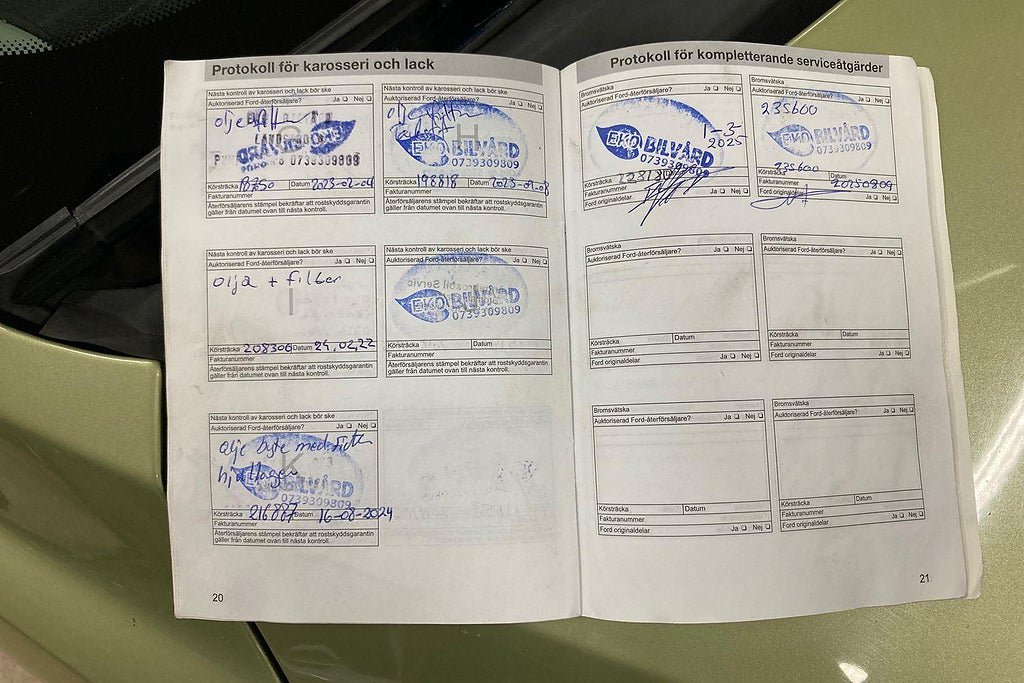 Protokoll för karosseri och lack
Nästa kontroll av karosseri och lack bör ske
Auktoriserad Ford-återförsäljare? Ja Nej
olje
0739309808
Körsträcka Datum 2023-02-04
Fakturanummer
Återförsäljarens stämpel bekräftar att rostskyddsgarantin
gäller från datumet ovan till nästa kontroll.
Nästa kontroll av karosseri och lack bör ske
Auktoriserad Ford-återförsäljare? Ja Nej
H
EKO BILVÅRD
0739309809
Körsträcka 198818 Datum
Fakturanummer
Återförsäljarens stämpel bekräftar att rostskyddsgarantin
gäller från datumet ovan till nästa kontroll.
Nästa kontroll av karosseri och lack bör ske
Auktoriserad Ford-återförsäljare? Ja Nej
olja + filter
I
Körsträcka 208306 Datum 24.02.22
Fakturanummer
Återförsäljarens stämpel bekräftar att rostskyddsgarantin
gäller från datumet ovan till nästa kontroll.
Nästa kontroll av karosseri och lack bör ske
Auktoriserad Ford-återförsäljare? Ja Nej
EKO BILVÅRD
0739309809
Körsträcka Datum
Fakturanummer
Återförsäljarens stämpel bekräftar att rostskyddsgarantin
gäller från datumet ovan till nästa kontroll.
Nästa kontroll av karosseri och lack bör ske
Auktoriserad Ford-återförsäljare? Ja Nej
olje byte med
K
BILVÅRD
0739309809
Körsträcka 216887 Datum 16-08-2024
Fakturanummer
Återförsäljarens stämpel bekräftar att rostskyddsgarantin
gäller från datumet ovan till nästa kontroll.
20
Protokoll för kompletterande serviceåtgärder
Bromsvätska
Auktoriserad Ford-återförsäljare? Ja Nej
1-3
2025
EKO BILVÅRD
0739309809
Körsträcka
Fakturanummer
Ford originaldelar
Bromsvätska
Auktoriserad Ford-återförsäljare? Ja Nej
235600
EKO BILVÅRD
0739309809
235600
Körsträcka Datum
Fakturanummer 20250809
Ford originaldelar Ja Nej
Bromsvätska
Auktoriserad Ford-återförsäljare? Ja Nej
Körsträcka Datum
Fakturanummer
Ford originaldelar Ja Nej
Bromsvätska
Auktoriserad Ford-återförsäljare? Ja Nej
Körsträcka Datum
Fakturanummer
Ford originaldelar Ja Nej
Bromsvätska
Auktoriserad Ford-återförsäljare? Ja Nej
Körsträcka Datum
Fakturanummer
Ford originaldelar Ja Nej
Bromsvätska
Auktoriserad Ford-återförsäljare? Ja Nej
Körsträcka Datum
Fakturanummer
Ford originaldelar Ja Nej
21